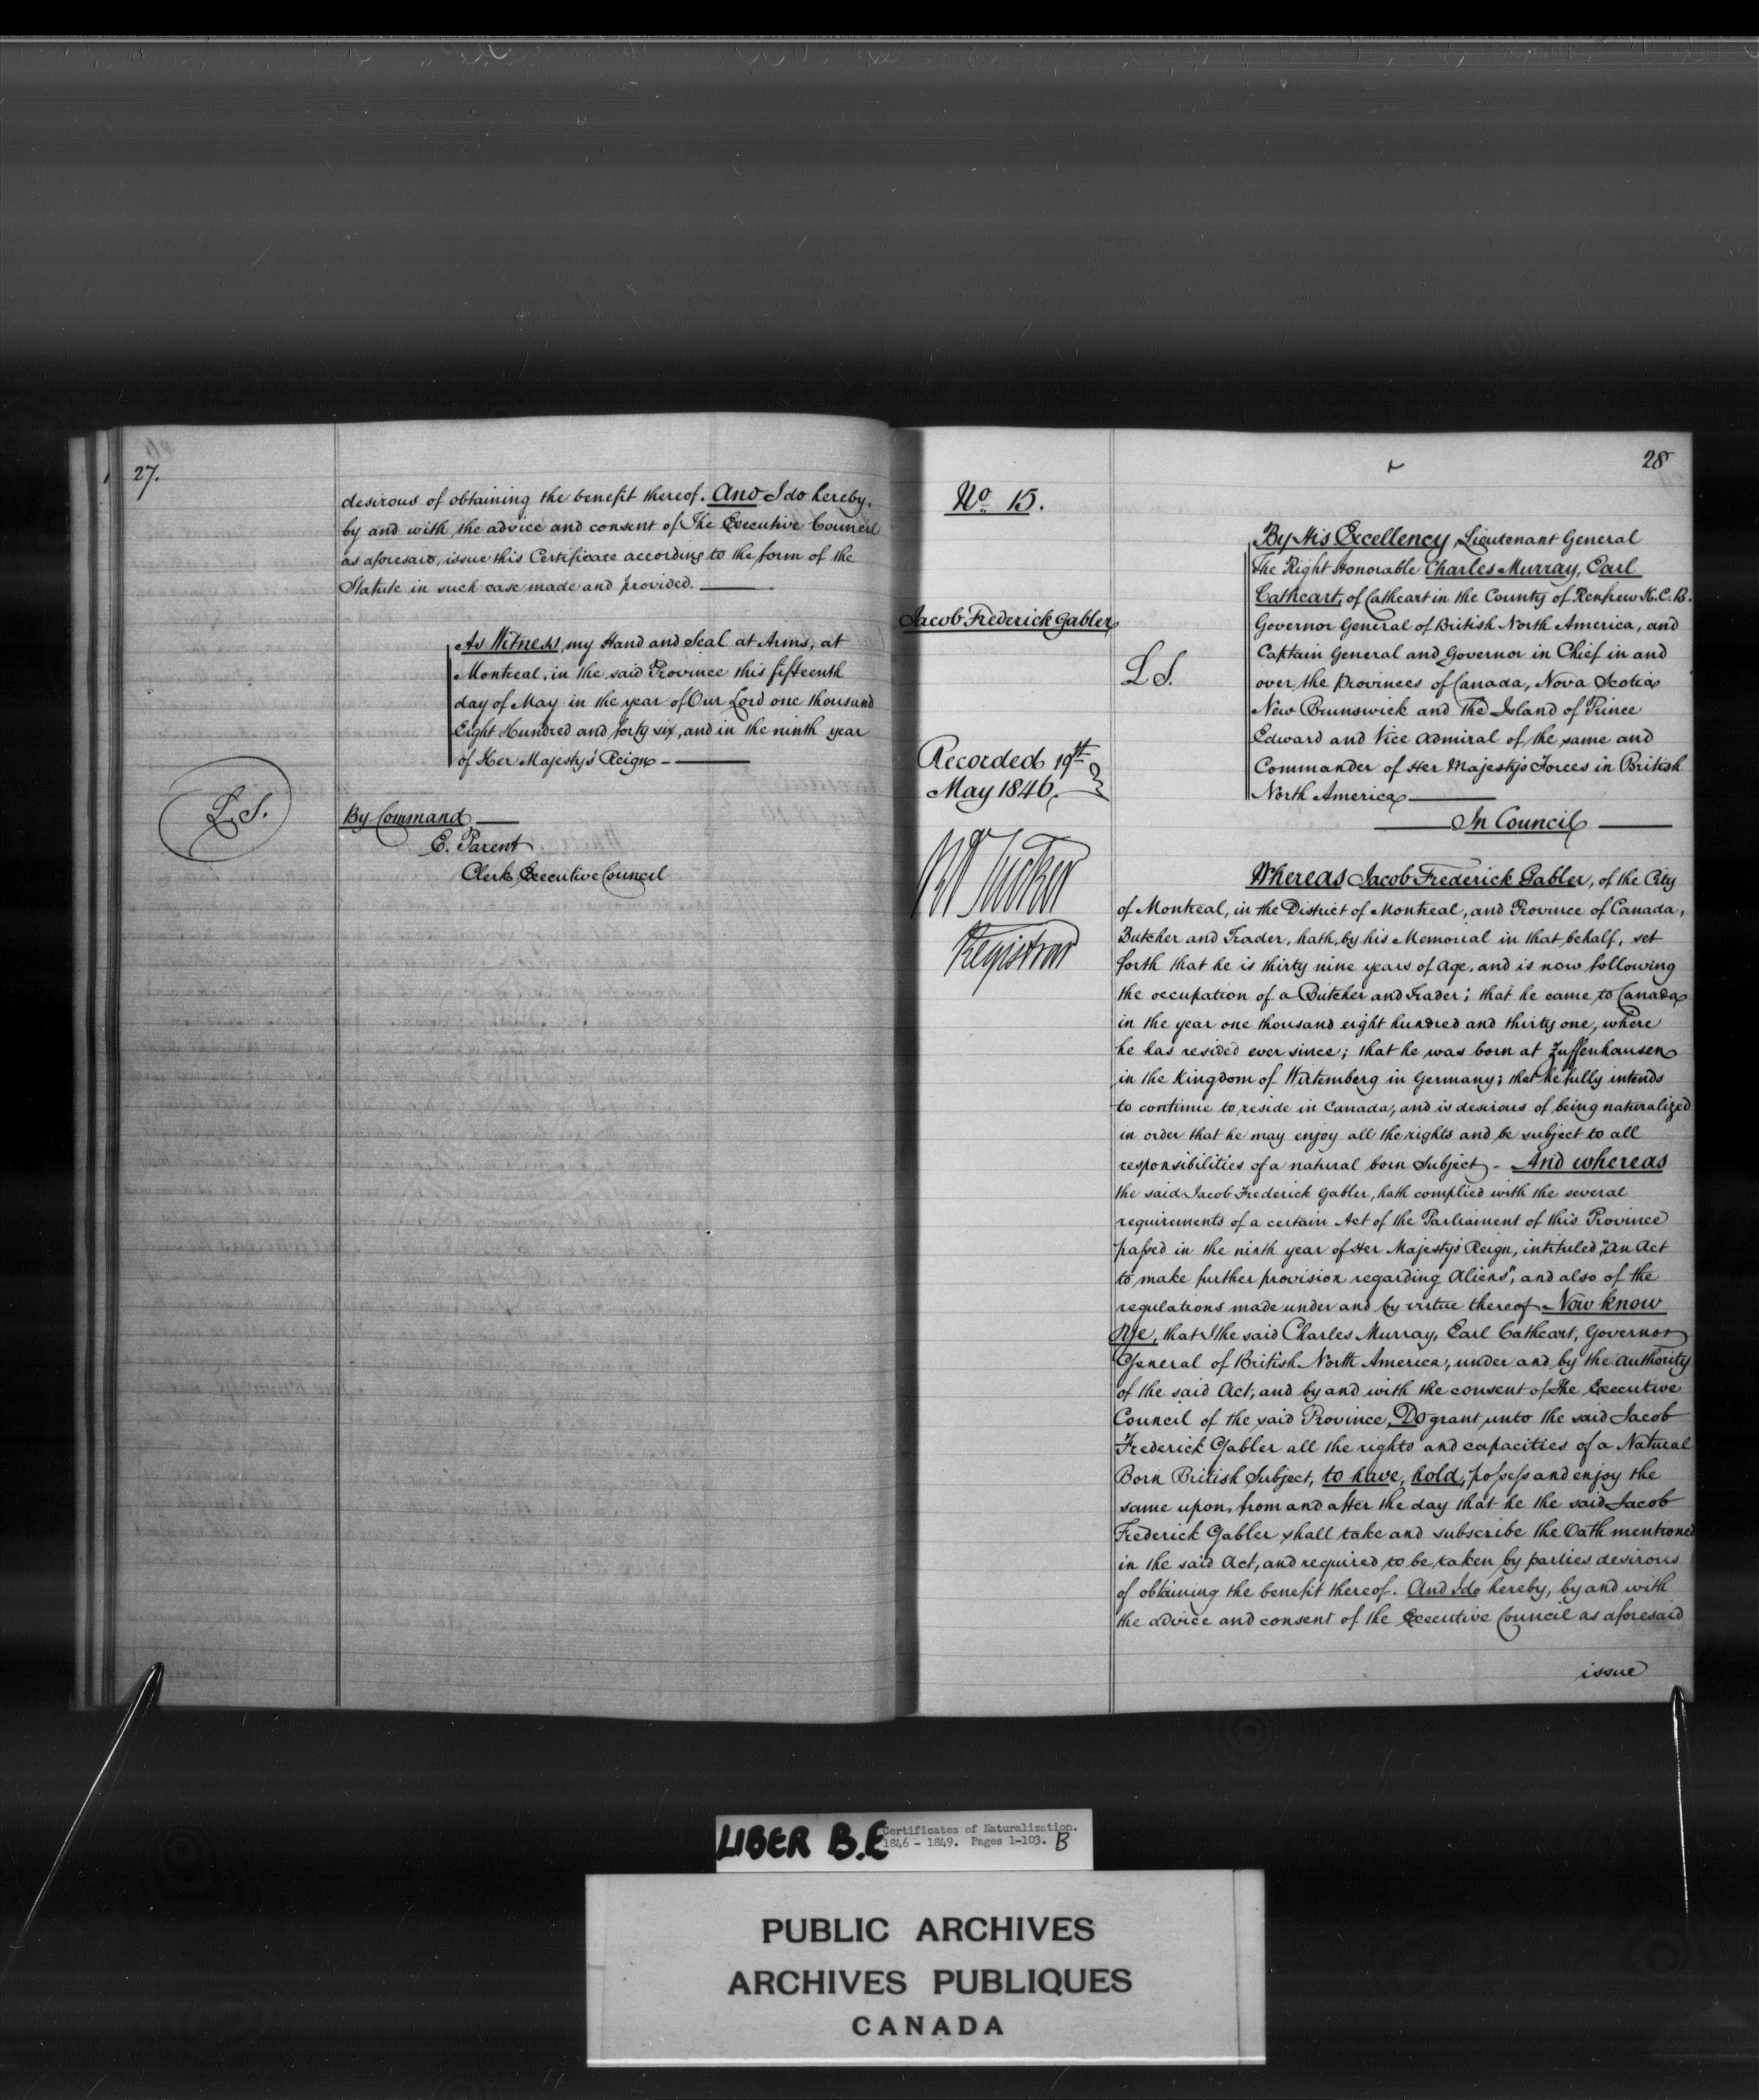 27.
desirous of obtaining the benefit thereof. And I do hereby,
by and with the advice and consent of The Executive Council
as aforesaid, issue this Certificate according to the form of the
Statute in such case made and provided.
As Witness, my Hand and Seal at Arms, at
Montreal, in the said Province this fifteenth
day of May in the year of Our Lord one thousand
Eight Hundred and forty six, and in the ninth year
of Her Majesty's Reign -
L.S.
By Command
E. Parent
Clerk Executive Council
28
No 15.
Jacob Frederick Gabler
L S.
Recorded 19th
May 1846.
Tucker
Registrar
By His Excellency, Lieutenant General
The Right Honorable Charles Murray, Earl
Cathcart, of Cathcart in the County of Renfrew K.C.B.
Governor General of British North America, and
Captain General and Governor in Chief in and
over the Provinces of Canada, Nova Scotia
New Brunswick and The Island of Prince
Edward and Vice Admiral of the same and
Commander of Her Majesty's Forces in British
North America
In Council
Whereas Jacob Frederick Gabler, of the City
of Montreal, in the District of Montreal, and Province of Canada,
Butcher and Trader, hath, by his Memorial in that behalf, set
forth that he is thirty nine years of age, and is now following
the occupation of a Butcher and Trader; that he came to Canada
in the year one thousand eight hundred and thirty one, where
he has resided ever since; that he was born at Zuffenhausen
in the Kingdom of Wirtemberg in Germany; that he fully intends
to continue to reside in Canada, and is desirous of being naturalized
in order that he may enjoy all the rights and be subject to all
responsibilities of a natural born Subject - And whereas
the said Jacob Frederick Gabler, hath complied with the several
requirements of a certain Act of the Parliament of this Province
passed in the ninth year of Her Majesty's Reign, intituled, "An Act
to make further provision regarding Aliens", and also of the
regulations made under and by virtue thereof - Now know
Ye, that I the said Charles Murray, Earl Cathcart, Governor
General of British North America, under and by the authority
of the said Act, and by and with the consent of The Executive
Council of the said Province, Do grant unto the said Jacob
Frederick Gabler all the rights and capacities of a Natural
Born British Subject, to have, hold, possess and enjoy the
same upon, from and after the day that he the said Jacob
Frederick Gabler shall take and subscribe the Oath mentioned
in the said Act, and required to be taken by parties desirous
of obtaining the benefit thereof. And I do hereby, by and with
the advice and consent of the Executive Council as aforesaid
issue
LIBER B.E
Certificates of Naturalization.
1846 - 1849. Pages 1-103. B
PUBLIC ARCHIVES
ARCHIVES PUBLIQUES
CANADA